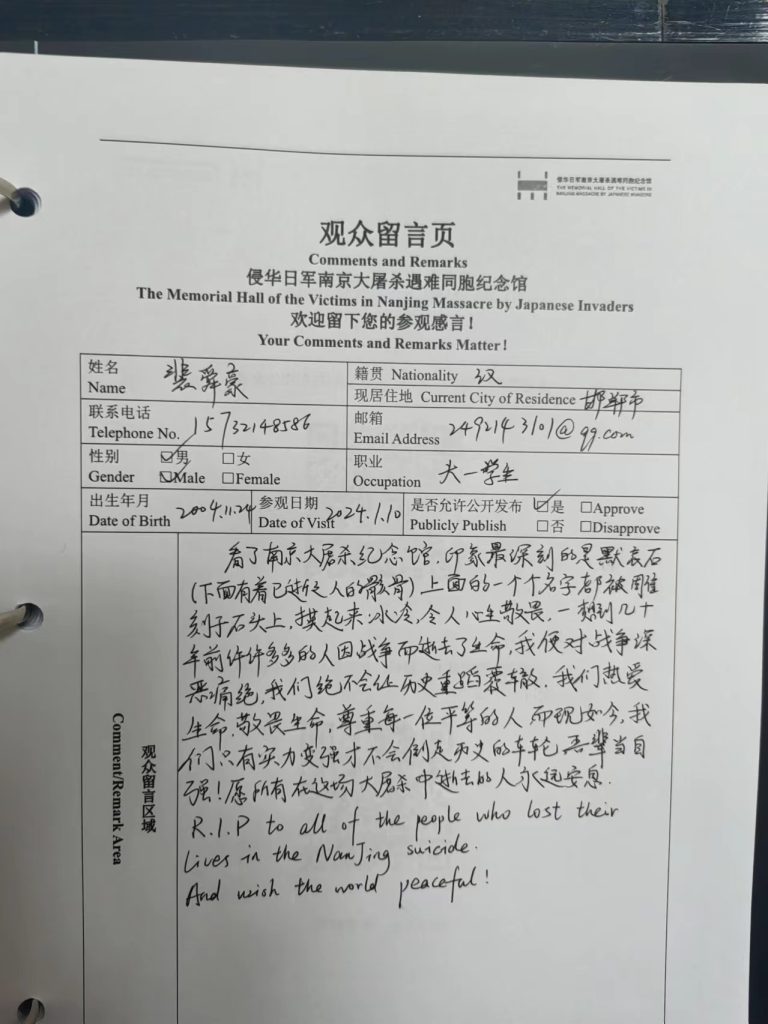 侵华日军南京大屠杀遇难同胞纪念馆
THE MEMORIAL HALL OF THE VICTIMS IN
NANJING MASSACRE BY JAPANESE INVADERS
观众留言页
Comments and Remarks
侵华日军南京大屠杀遇难同胞纪念馆
The Memorial Hall of the Victims in Nanjing Massacre by Japanese Invaders
欢迎留下您的参观感言!
Your Comments and Remarks Matter!
姓名
Name 裴舜豪
籍贯 Nationality 汉
现居住地 Current City of Residence 邯郸市
联系电话
Telephone No. 15732148586
邮箱
Email Address 2492143101@qq.com
性别 ☑男 ☐女
Gender ☑Male ☐Female
职业
Occupation 大一学生
出生年月
Date of Birth 2004.11.24
参观日期
Date of Visit 2024.1.10
是否允许公开发布 ☑是 ☐Approve
Publicly Publish ☐否 ☐Disapprove
观众留言区域
Comment/Remark Area
看了南京大屠杀纪念馆,印象最深刻的是默哀石
(下面有着已逝之人的骸骨)上面的一个个名字都被雕
刻于石头上,摸起来冰冷,令人心生敬畏,一想到几十
年前许许多多的人因战争而逝去了生命,我便对战争深
恶痛绝,我们绝不会让历史重蹈覆辙.我们热爱
生命,敬畏生命,尊重每一位平等的人 而现如今,我
们只有实力变强才不会倒走历史的车轮 吾辈当自
强!愿所有在这场大屠杀中逝去的人永远安息.
R.I.P to all of the people who lost their
lives in the NanJing suicide.
And wish the world peaceful!